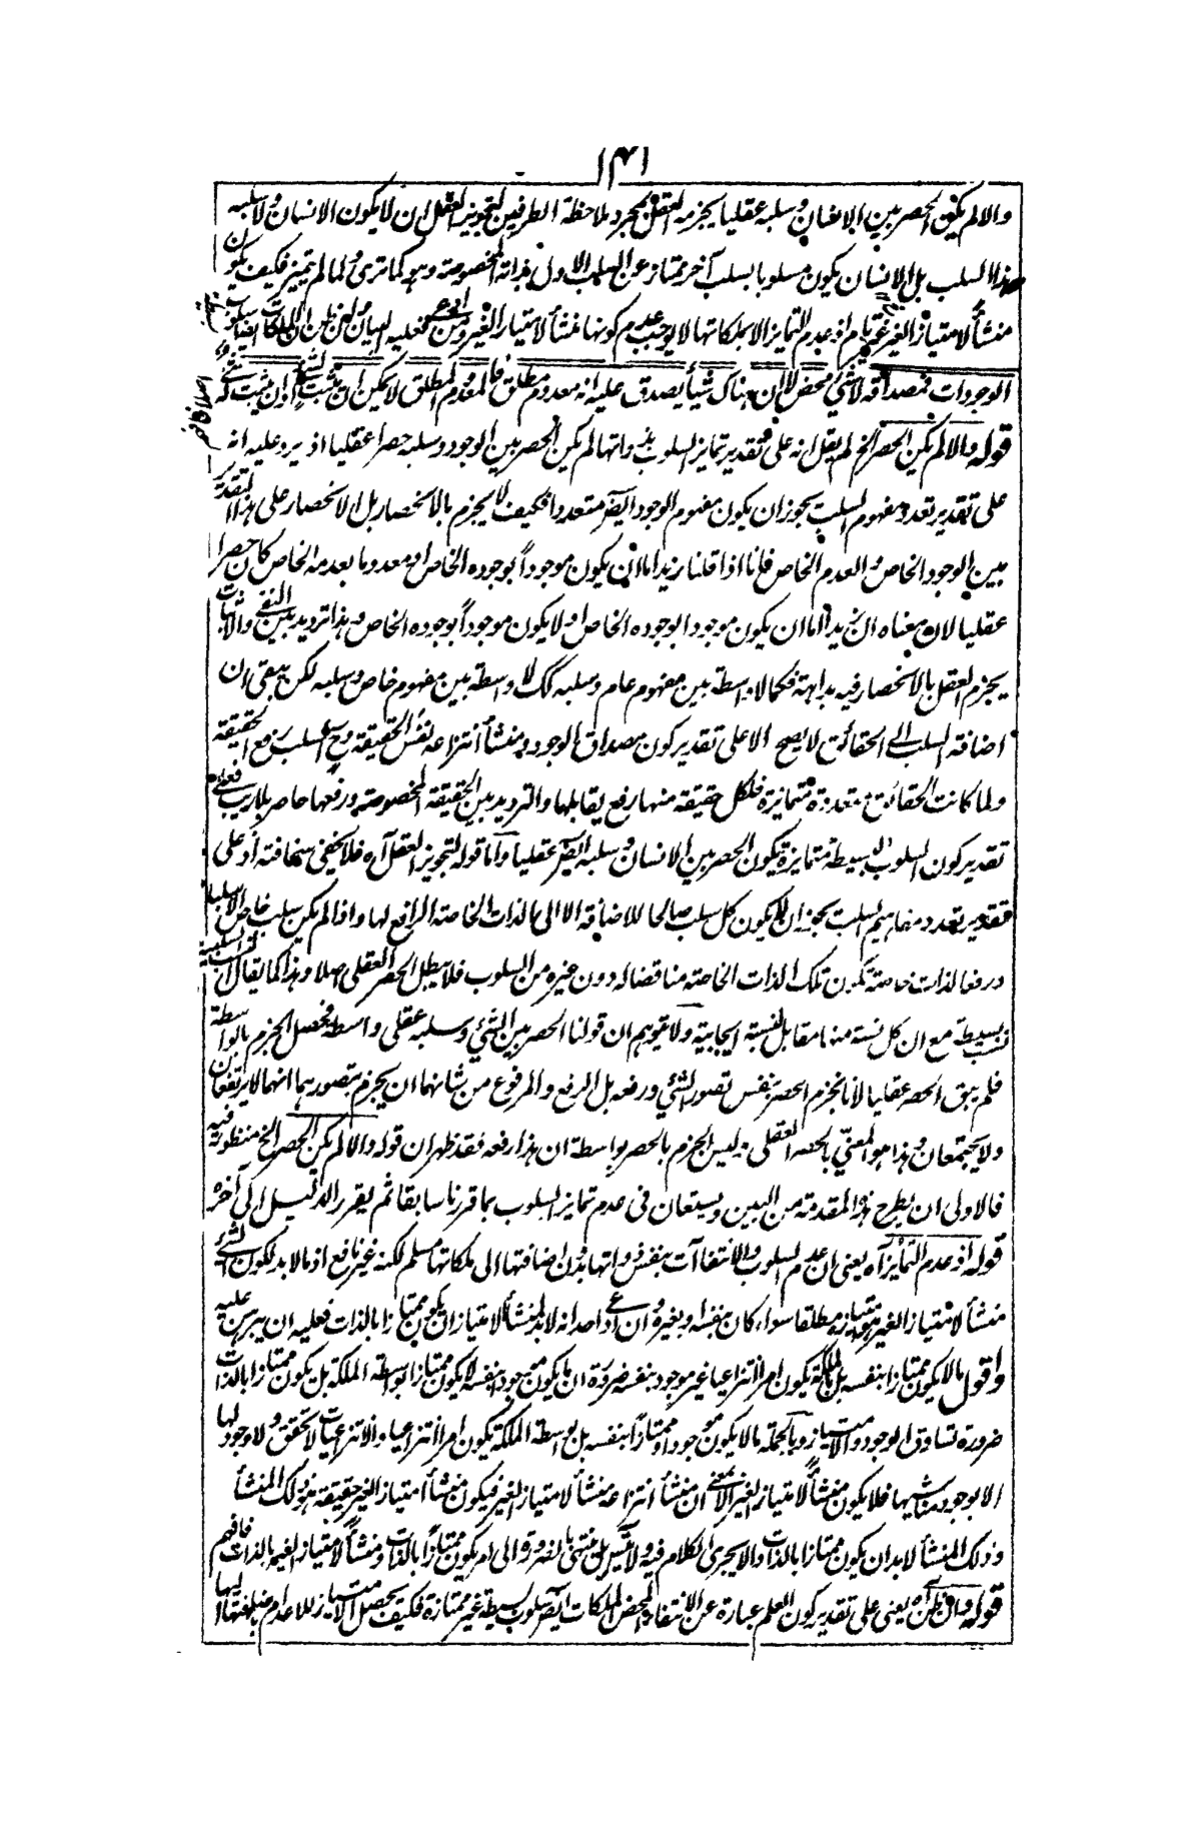 ١٤١
والا لم يكن الحصر بين الانسان وسلبه عقليا يجزم به العقل بمجرد ملاحظة الطرفين لتجويز العقل ان لا يكون الانسان ولا سلبه
هذا السلب بل الانسان يكون مسلوبا بسلب آخر ممتاز عن السلب الاول بذاته المخصوصة وهو كما ترى ولما لم يتميز فكيف يكون
منشأ لامتياز الغير اذ عدم التمايز الا بملكاتها لا يوجب عدم كونها منشأ لامتياز الغير ومن ادعى فعليه البيان ولئن ظن ان الملكات ايضا سلوب
الوجودات فمصداقه لا شيء محض لا ان هناك شيأ يصدق عليه انه معدوم مطلق فالمعدوم المطلق لا يمكن ان يثبت لشيء او ان يثبت شيء له
قوله والا لم يكن الحصر الخ لم يقل انه على تقدير تمايز السلوب بذواتها لم يكن الحصر بين الوجود وسلبه حصرا عقليا اذ يرد عليه انه
على تقدير تعدد مفهوم السلب يجوز ان يكون مفهوم الوجود ايضا متعددا فكيف لا يجزم بالانحصار بل الانحصار على هذا التقدير
بين الوجود الخاص والعدم الخاص فإنا اذا قلنا زيد اما ان يكون موجوداً بوجوده الخاص او معدوما بعدمه الخاص كان حصرا
عقليا لان معناه ان زيدا اما ان يكون موجودا بوجوده الخاص او لا يكون موجوداً بوجوده الخاص وهذا ترديد بين النفي والاثبات
يجزم العقل بالانحصار فيه بداهة فكما لا واسطة بين مفهوم عام وسلبه كك لا واسطة بين مفهوم خاص وسلبه لكن يبقى ان
اضافة السلب الى الحقائق لا يصح الا على تقدير كون مصداق الوجود ومنشأ انتزاعه نفس الحقيقة وح السلب رفع الحقيقة
ولما كانت الحقائق متعددة متمايزة فلكل حقيقة منها رفع يقابلها والترديد بين الحقيقة المخصوصة ورفعها حاصر بلا ريب فعلى
تقدير كون السلوب البسيطة متمايزة يكون الحصر بين الانسان وسلبه ايضا عقليا واما قوله لتجويز العقل آه فلا يخفى سخافته اذ على
تقدير تعدد مفاهيم السلب يجوز ان لا يكون كل سلب صالحا للاضافة الا الى الذات الخاصة الرافع لها واذا لم يكن سلب خاص الا سلبا
ورفعا لذات خاصة تكون تلك الذات الخاصة مناقضا له دون غيره من السلوب فلا يبطل الحصر العقلي اصلا وهذا كما يقال ان السلبية
بسيطة مع ان كل نسبة منها مقابل لنسبة ايجابية ولا يتوهم ان قولنا الحصر بين الشيء وسلبه عقلي واسطة فحصل الجزم بالواسطة
فلم يبق الحصر عقليا لانا نجزم الحصر بنفس تصور الشيء ورفعه بل الرفع والمرفوع من شانهما ان يجزم بتصورهما انهما لا يرتفعان
ولا يجتمعان وهذا هو المعنيّ بالحصر العقلي وليس الجزم بالحصر بواسطة ان هذا رفعه فقد ظهر ان قوله والا لم يكن الحصر الخ منظور فيه
فالاولى ان يطرح هذه المقدمة من البين ويستعان في عدم تمايز السلوب بما قررنا سابقا ثم يقرر الدليل الى آخره
قوله اذ عدم التمايز آه يعني ان عدم السلوب والانتفاآت بنفس ذواتها بدون اضافتها الى ملكاتها مسلم لكنه غير نافع اذ ما لا بد لكون الشيء
منشأ لامتياز الغير هو تميزه مطلقا سواء كان بنفسه او بغيره وان ادعى احد انه لا بد لمنشأ الامتياز ان يكون ممتازا بالذات فعليه ان يبرهن عليه
واقول ما لا يكون ممتازا بنفسه بل بالملكة يكون امرا انتزاعيا غير موجود بنفسه ضرورة ان ما يكون موجودا بنفسه لا يكون ممتازا بواسطة الملكة بل يكون ممتازا بالذات
ضرورة تساوق الوجود والامتياز وبالجملة ما لا يكون موجودا وممتازاً بنفسه بل بواسطة الملكة يكون امرا انتزاعيا والانتزاعيات لا تحقق ولا وجود لها
الا بوجود مناشيها فلا يكون منشأ لامتياز الغير الا بمعنى ان منشأ انتزاعه منشأ لامتياز الغير فيكون منشأ امتياز الغير حقيقة هو ذلك المنشأ
وذلك المنشأ لا بد ان يكون ممتازا بالذات والا يجرى الكلام فيه ولا يتسلسل بل ينتهي بالضرورة الى امر يكون ممتازاً بالذات ومنشأ لامتياز الغير بالذات فافهم
قوله وان ظن آه يعني على تقدير كون العلم عبارة عن الانتفاء المحض الملكات ايضا سلوب بسيطة غير ممتازة فكيف يحصل الامتياز للاعدام باضافتها اليها